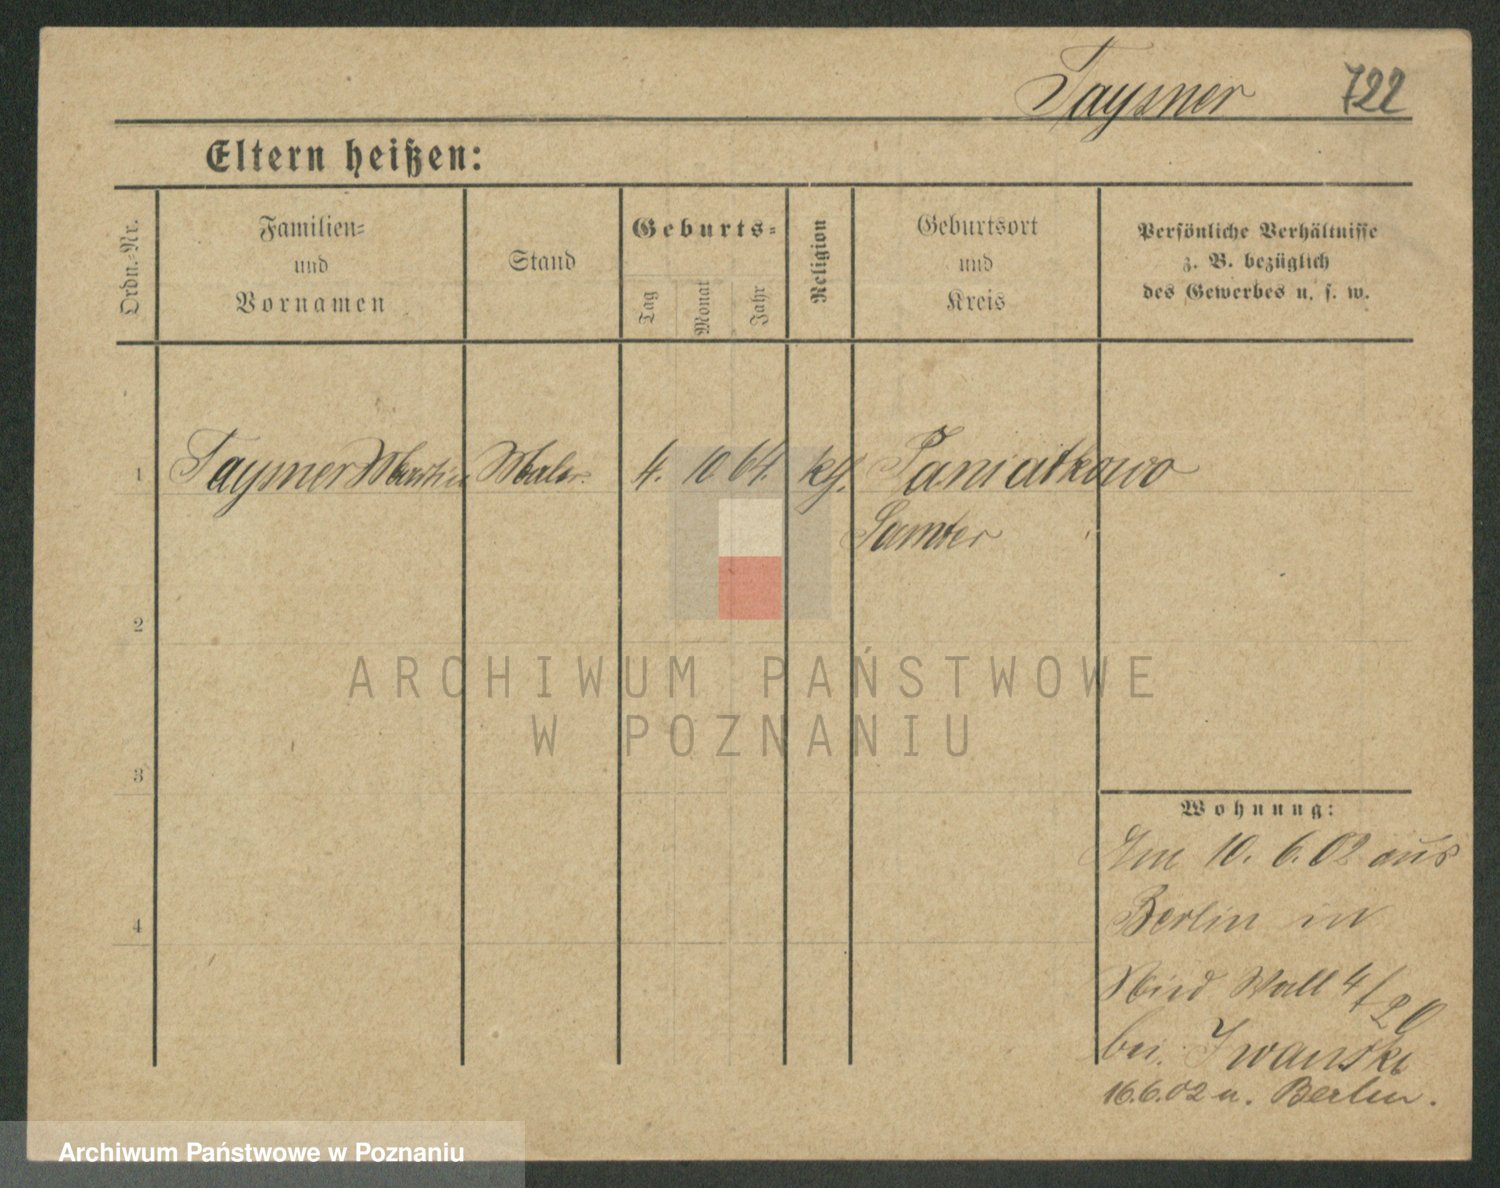 Taysner 722
Eltern heißen:
Ordn.-Nr.
Familien-
und
Vornamen
Stand
Geburts-
Tag
Monat
Jahr
Religion
Geburtsort
und
Kreis
Persönliche Verhältnisse
z. B. bezüglich
des Gewerbes u. s. w.
1 Taysner Martin Maler 4. 10 64. kg. Paniatkowo
Samter
2
3
4
Wohnung:
Am 10. 6. 02 aus
Berlin in
Nied Wall 4/20
bei Iwanski
16.6.02 n. Berlin.
ARCHIWUM PAŃSTWOWE
W POZNANIU
Archiwum Państwowe w Poznaniu